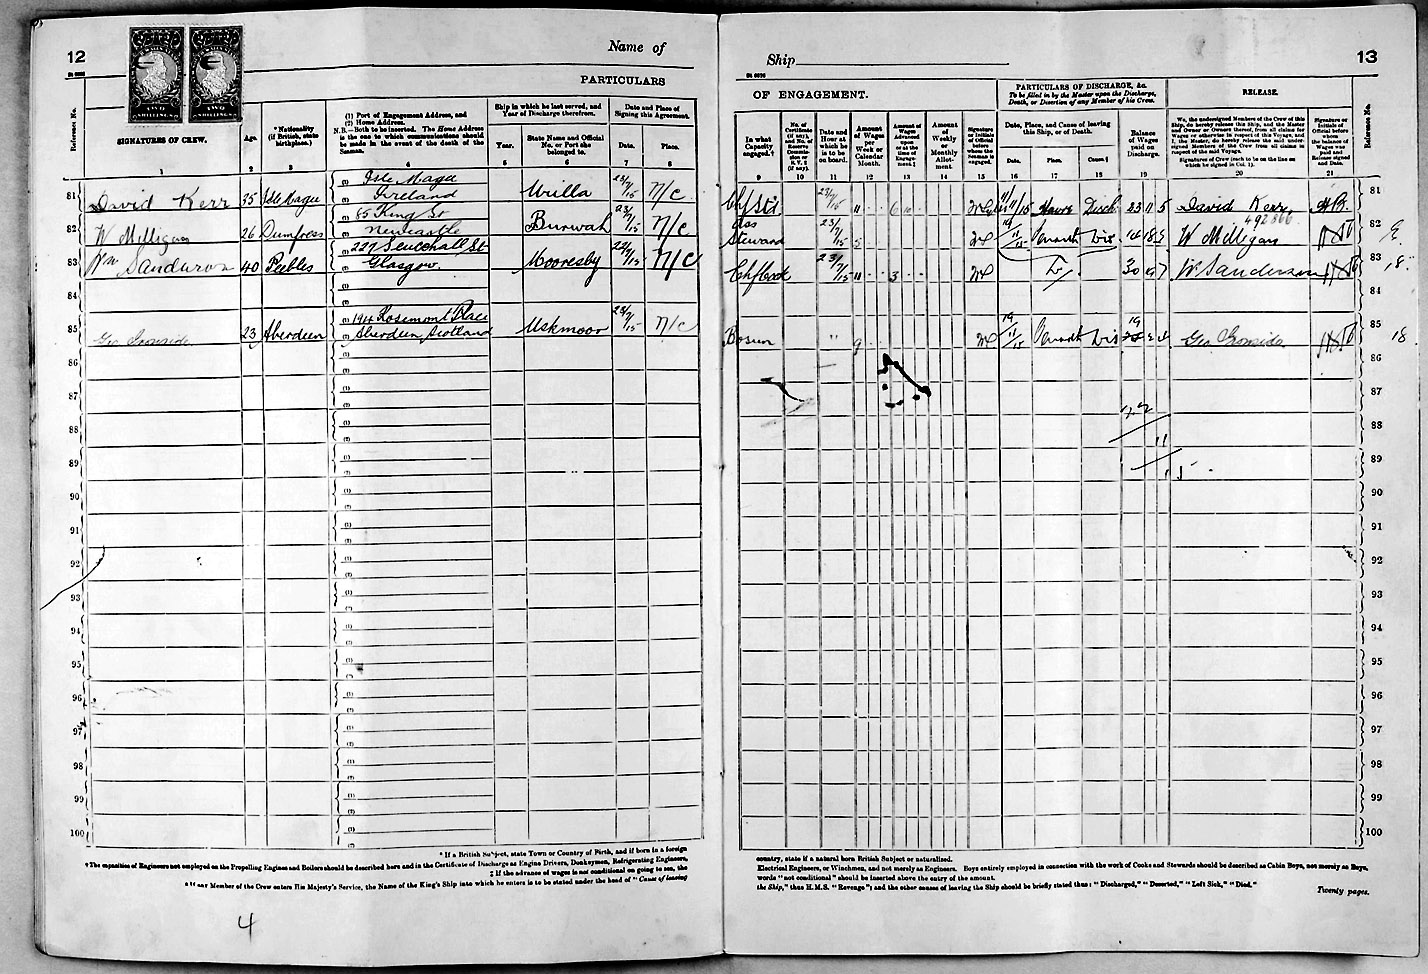 12
Name of
Ship
13
PARTICULARS
OF ENGAGEMENT.
PARTICULARS OF DISCHARGE, &c.
To be filled in by the Master upon the Discharge,
Death, or Desertion of any Member of his Crew.
RELEASE.
Reference No.
SIGNATURES OF CREW.
Age.
*Nationality
(if British, state
birthplace.)
(1) Port of Engagement Address, and
(2) Home Address.
N.B.—Both to be inserted. The Home Address
is the one to which communications should
be made in the event of the death of the
Seaman.
Ship in which he last served, and
Year of Discharge therefrom.
Year.
State Name and Official
No. or Port she
belonged to.
Date and Place of
Signing this Agreement.
Date.
Place.
In what
Capacity
engaged.†
No. of
Certificate
(if any),
and No. of
Reserve
Commission
or
R.V. 2
(if any).
Date and
Hour at
which he
is to be
on board.
Amount
of Wages
per
Week or
Calendar
Month.
Amount of
Wages
Advanced
upon
or at the
time of
Engagement.‡
Amount
of
Weekly
or
Monthly
Allotment.
Signature
or Initials
of Official
before whom
the Seaman is
engaged.
Date, Place, and Cause of leaving
this Ship, or of Death.
Date.
Place.
Cause.¶
Balance
of Wages
paid on
Discharge.
We, the undersigned Members of the Crew of this
Ship, do hereby release this Ship, and the Master
and Owner or Owners thereof, from all claims for
Wages or otherwise in respect of this Voyage, and
I, the Master, do hereby release the said undersigned
Members of the Crew from all claims in
respect of the said Voyage.
Signatures of Crew (each to be on the line on
which he signed in Col. 1).
Signature or
Initials of
Official before
whom
the balance of
Wages was
paid and
Release signed
and Dated.
Reference No.
1 2 3 4 5 6 7 8 9 10 11 12 13 14 15 16 17 18 19 20 21
81 David Kerr 35 Isle Magee (1) Isle Magee (2) Ireland Urilla 23/7/15 N/C Chf Std 23/7/15 11 6 11/11/15 Havre Disch 23 11 5 David Kerr 81
492566
82 W Milligan 26 Dumfress (1) 85 King St (2) Newcastle Burwah 23/7/15 N/C Ass Steward 23/7/15 5 W Milligan 82
83 Wm Sanderson 40 Peebles (1) 227 St (2) Glasgow. Mooresby 22/7/15 N/C Chf Cook 23/7/15 11 3 30 W. Sanderson 83
18.
84 84
85 Geo Ironside 23 Aberdeen (1) Rosemont Place (2) Aberdeen, Scotland Uskmoor 22/7/15 N/C Bosun " 9 19/11/15 Dis Geo Ironside 85
18
86 86
87 87
88 88
11
89 89
90 90
91 91
92 92
93 93
94 94
95 95
96 96
97 97
98 98
99 99
100 100
* If a British Subject, state Town or Country of Birth, and if born in a foreign
country, state if a natural born British Subject or naturalized.
†The capacities of Engineers not employed on the Propelling Engines and Boilers should be described here and in the Certificate of Discharge as Engine Drivers, Donkeymen, Refrigerating Engineers,
Electrical Engineers, or Winchmen, and not merely as Engineers. Boys entirely employed in connection with the work of Cooks and Stewards should be described as Cabin Boys, not merely as Boys.
‡ If the advance of wages is not conditional on going to sea, the
words "not conditional" should be inserted above the entry of the amount.
Member of the Crew enters His Majesty's Service, the Name of the King's Ship into which he enters is to be stated under the head of "Cause of leaving
the Ship," thus H.M.S. "Revenge"; and the other causes of leaving the Ship should be briefly stated thus: "Discharged," "Deserted," "Left Sick," "Died."
Twenty pages.
4